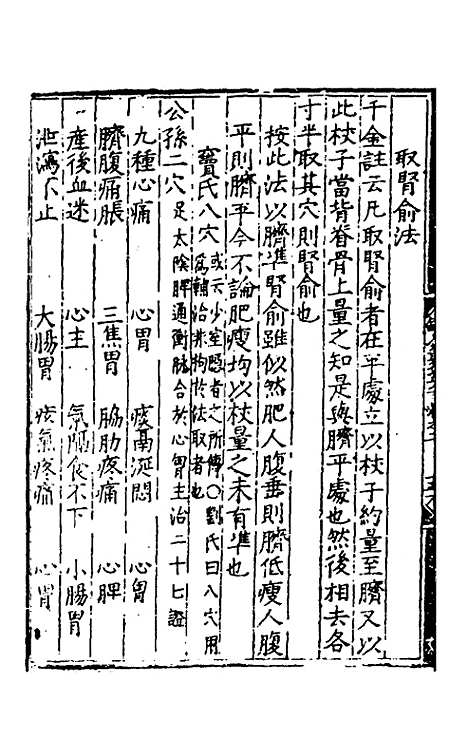 取腎俞法
千金註云凡取腎俞者在平處立以杖子約量至臍又以
此杖子當背脊骨上量之知是與臍平處也然後相去各
寸半取其穴則腎俞也
按此法以臍準腎俞雖似然肥人腹垂則臍低瘦人腹
平則臍平今不論肥瘦均以杖量之未有準也
竇氏八穴 或云少室隱者之所傳○劉氏曰八穴用
為輔治非拘於法取者也
公孫二穴 足太陰脾通衝脉合於心胃主治二十七證
九種心痛 心胃 痰鬲涎悶 心胃
臍腹痛脹 三焦胃 脇肋疼痛 心脾
產後血迷 心主 氣隔食不下 小腸胃
泄瀉不止 大腸胃 痃氣疼痛 心胃